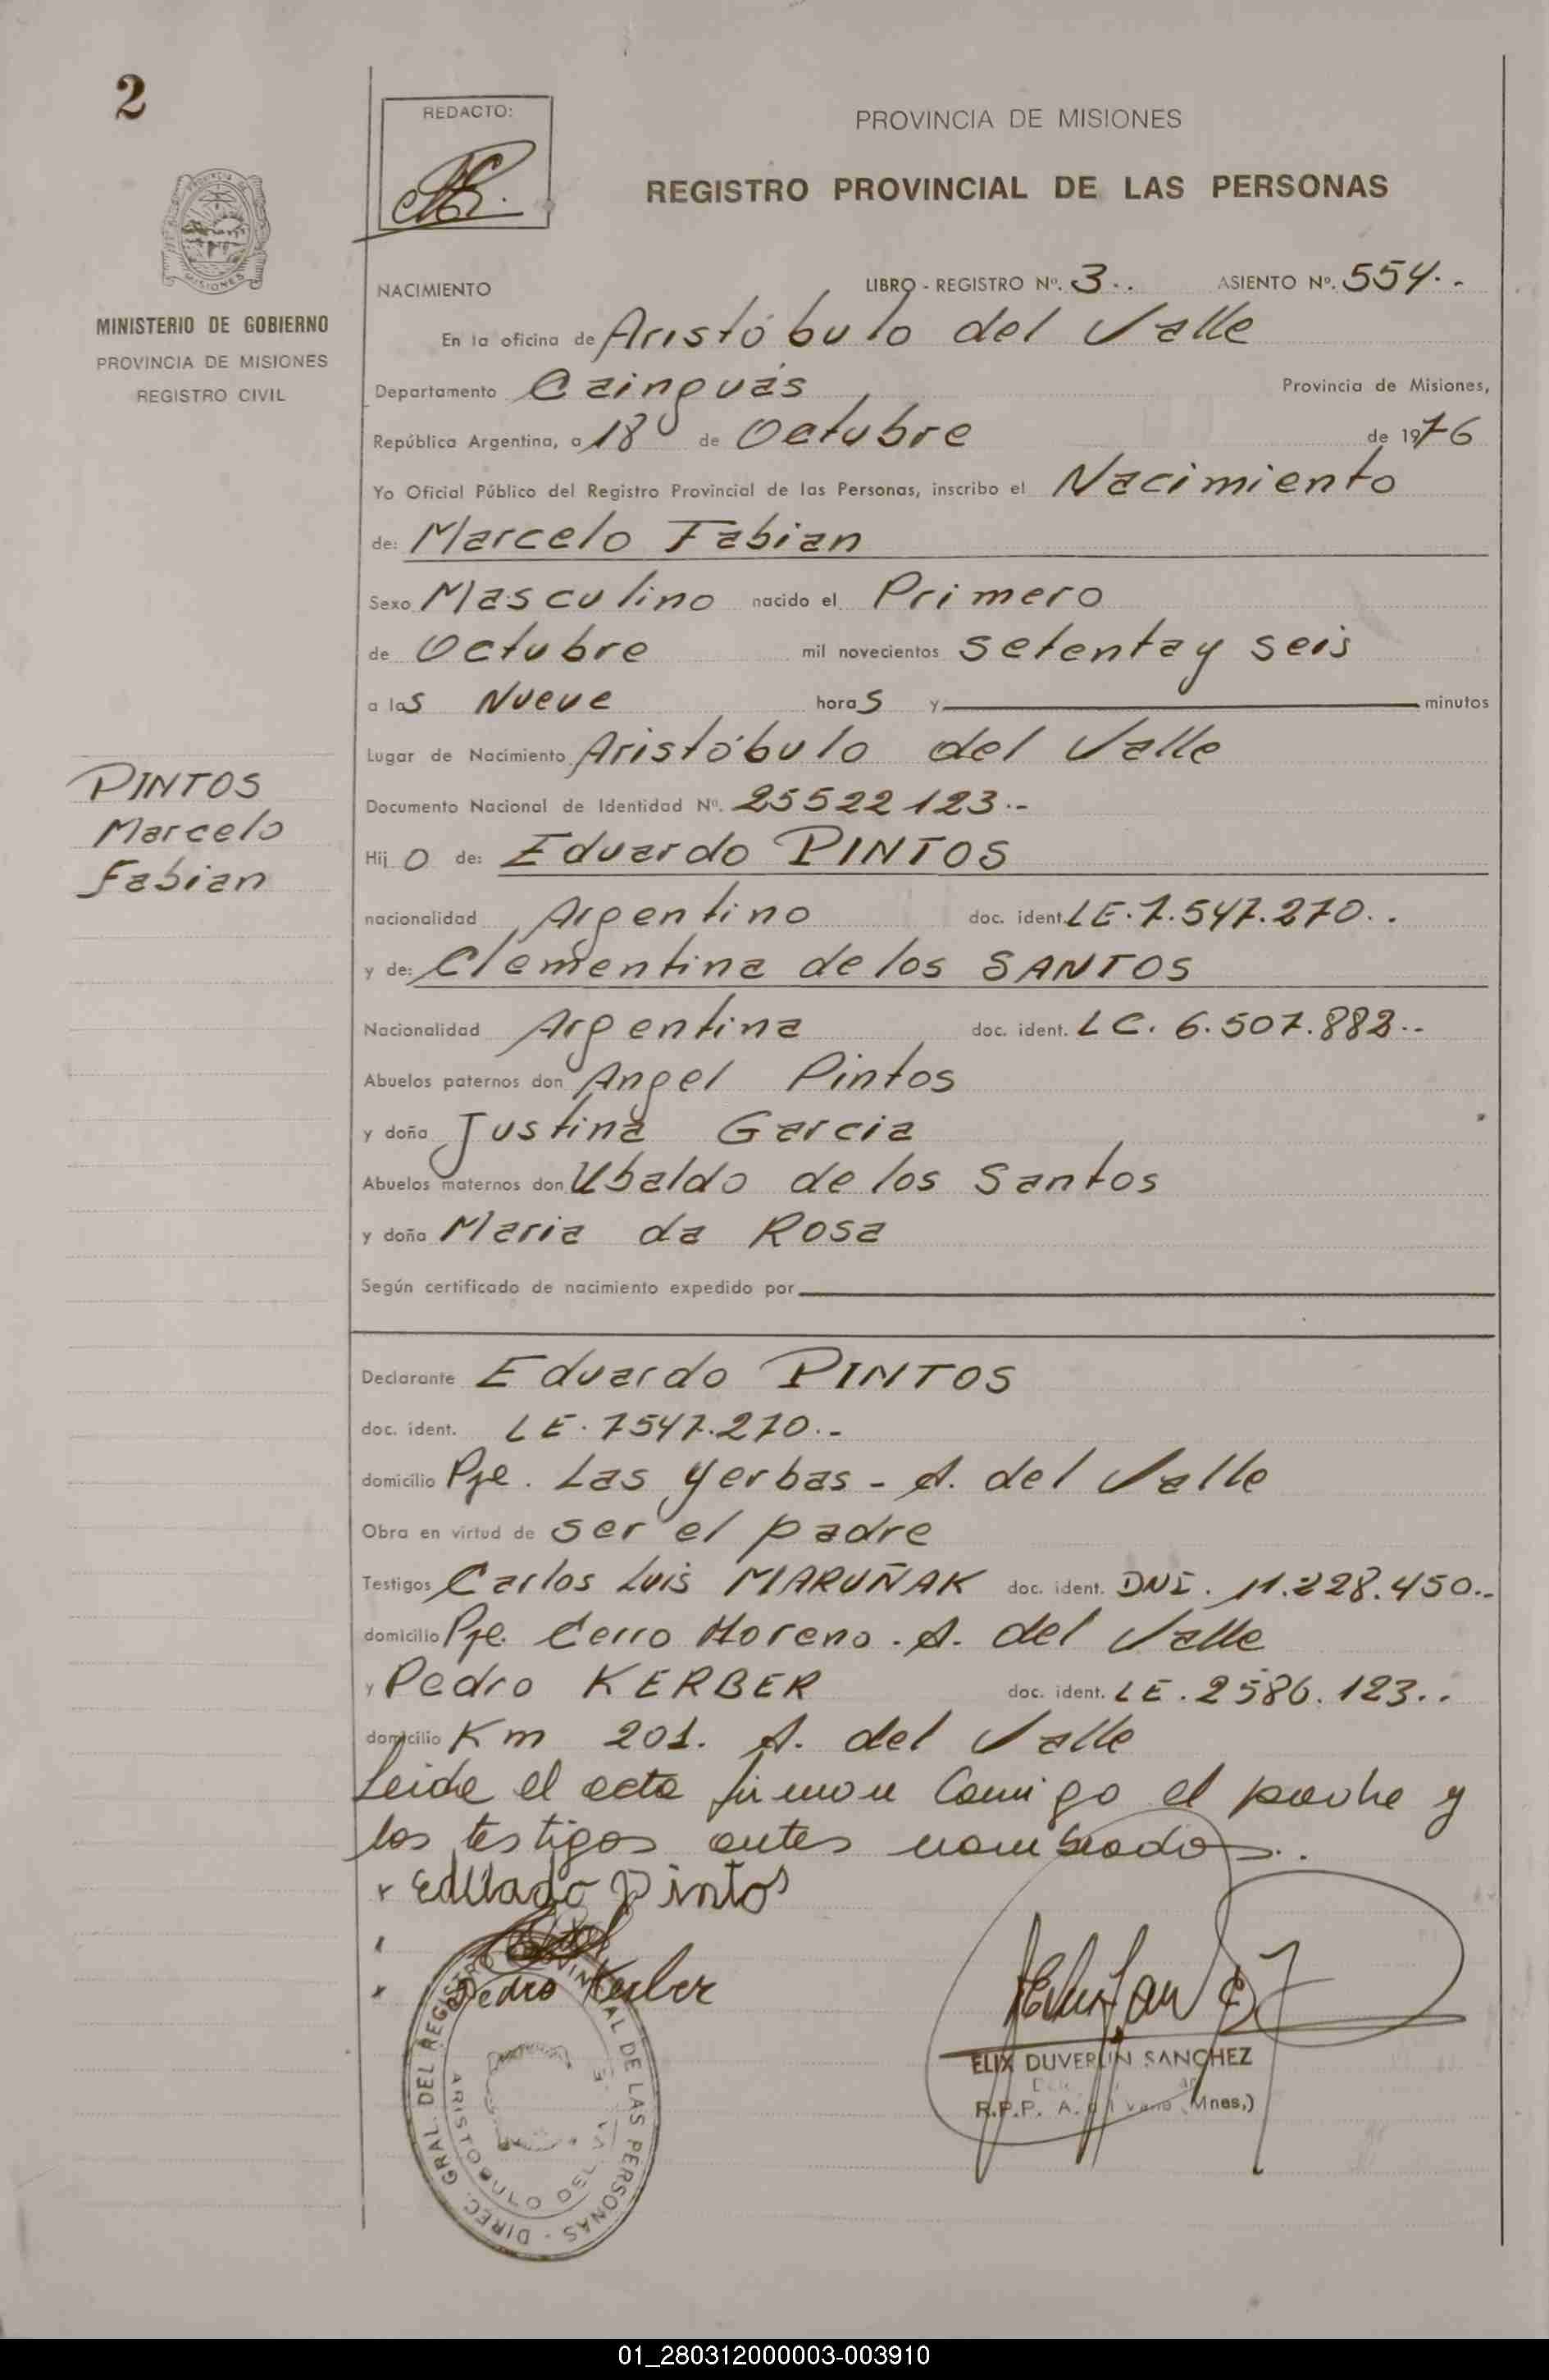 2
REDACTO:
PROVINCIA DE MISIONES
REGISTRO PROVINCIAL DE LAS PERSONAS
MINISTERIO DE GOBIERNO
PROVINCIA DE MISIONES
REGISTRO CIVIL
NACIMIENTO LIBRO - REGISTRO Nº. 3.. ASIENTO Nº. 554.-
En la oficina de Aristóbulo del Valle
Departamento Cainguás Provincia de Misiones,
República Argentina, a 18 de Octubre de 1976
Yo Oficial Público del Registro Provincial de las Personas, inscribo el Nacimiento
de: Marcelo Fabian
Sexo Masculino nacido el Primero
de Octubre mil novecientos setenta y seis
a las Nueve horas y minutos
Lugar de Nacimiento Aristóbulo del Valle
Documento Nacional de Identidad Nº. 25522123.-
PINTOS
Marcelo
Fabian
Hijo de: Eduardo PINTOS
nacionalidad Argentino doc. ident. LE. 7.547.270..
y de: Clementina de los SANTOS
Nacionalidad Argentina doc. ident. LC. 6.507.882.-
Abuelos paternos don Angel Pintos
y doña Justina Garcia
Abuelos maternos don Ubaldo de los Santos
y doña Maria da Rosa
Según certificado de nacimiento expedido por
Declarante Eduardo PINTOS
doc. ident. LE. 7547.270.-
domicilio Pje. Las Yerbas - A. del Valle
Obra en virtud de ser el padre
Testigos Carlos Luis MARUÑAK doc. ident. DNI. 11.228.450.-
domicilio Pje. Cerro Moreno. A. del Valle
y Pedro KERBER doc. ident. LE. 2586.123..
domicilio Km 201. A. del Valle
Leida el acta firman Comigo el padre y
los testigos antes nombrados..
x Eduado Pintos
x Pedro Kerber
DIREC. GRAL. DEL REGISTRO PROVINCIAL DE LAS PERSONAS -
ARISTOBULO DEL VALLE
ELIX DUVERLIN SANCHEZ
R.P.P. A. del Valle (Mnes.)
01_280312000003-003910